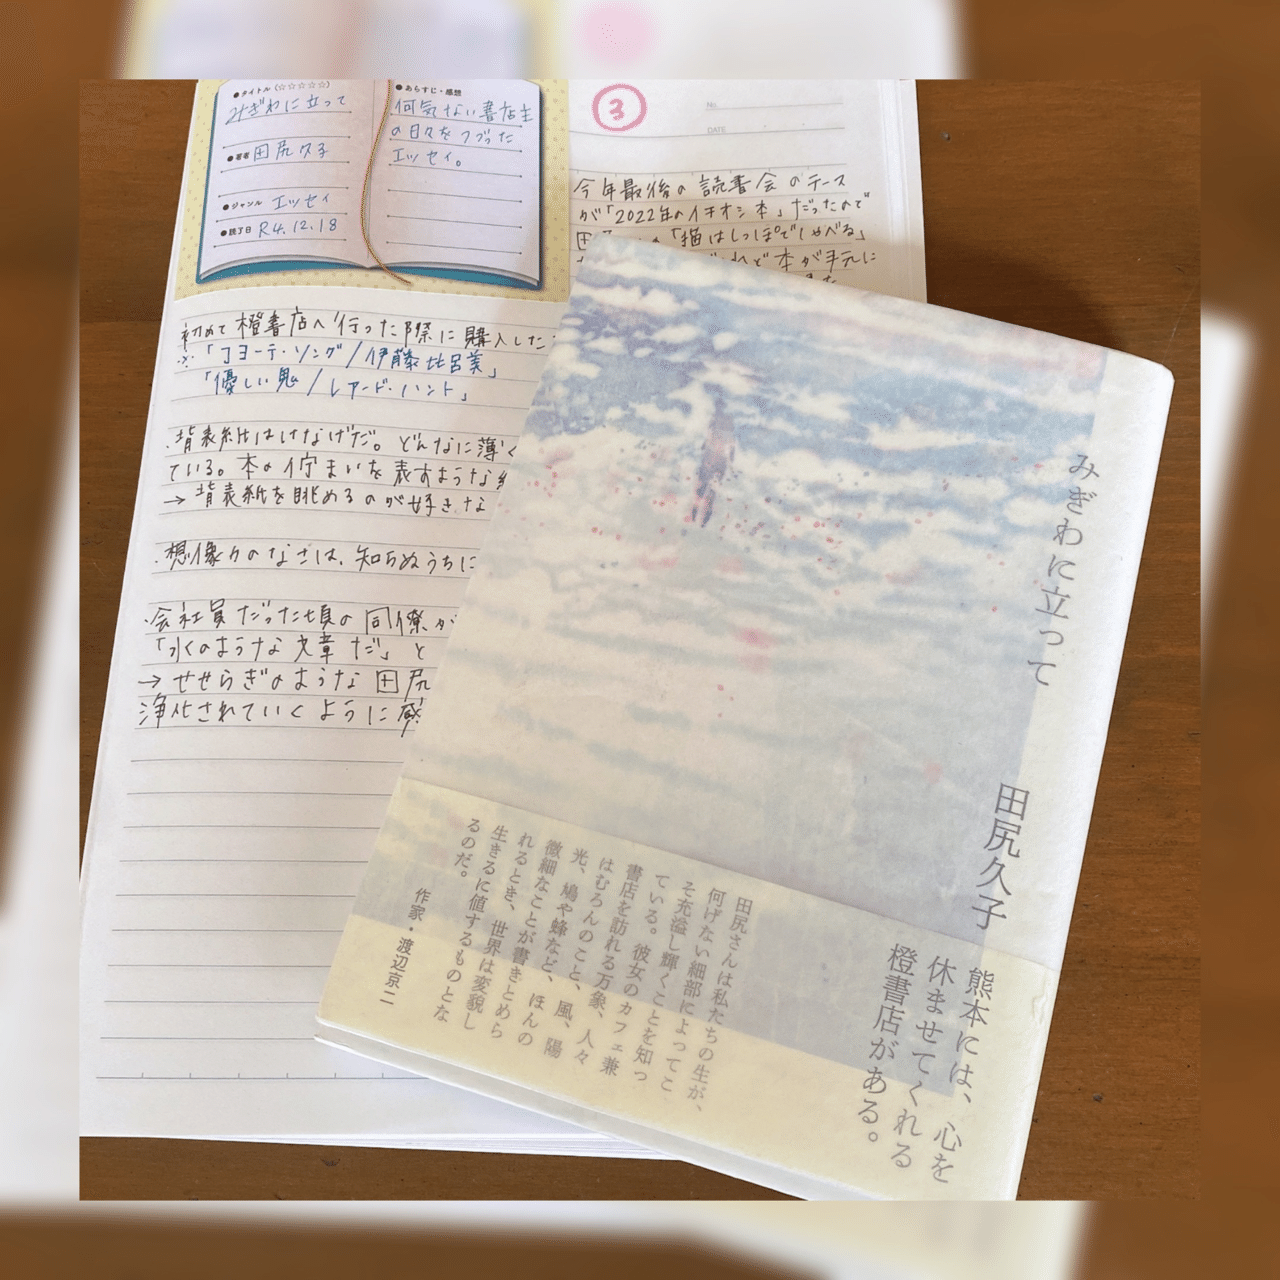 ●タイトル(☆☆☆☆☆)
みぎわに立って
●著者 田尻久子
●ジャンル エッセイ
●読了日 R4.12.18
●あらすじ・感想
何気ない書店主
の日々をつづった
エッセイ。
初めて橙書店へ行った際に購入した
※「コヨーテ・ソング/伊藤比呂美」
「優しい鬼/レアード・ハント」
・背表紙はけなげだ。どんなに薄く
ている。本の佇まいを表すような
→背表紙を眺めるのが好きな
・想像力のなさは、知らぬうちに
・会社員だった頃の同僚が
「水のような文章だ」と
→せせらぎのような田尻
浄化されていくように感
③
No.
DATE
今年最後の読書会のテーマ
が「2022年のイチオシ本」だったので
田 の「猫はしっぽでしゃべる」
れど本が手元に
みぎわに立って
田尻久子
熊本には、心を
休ませてくれる
橙書店がある。
田尻さんは私たちの生が、
何げない細部によってこ
そ充溢し輝くことを知っ
ている。彼女のカフェ兼
書店を訪れる万象、人々
はむろんのこと、風、陽
光、鳩や蜂など、ほんの
微細なことが書きとめら
れるとき、世界は変貌し
生きるに値するものとな
るのだ。
作家・渡辺京二